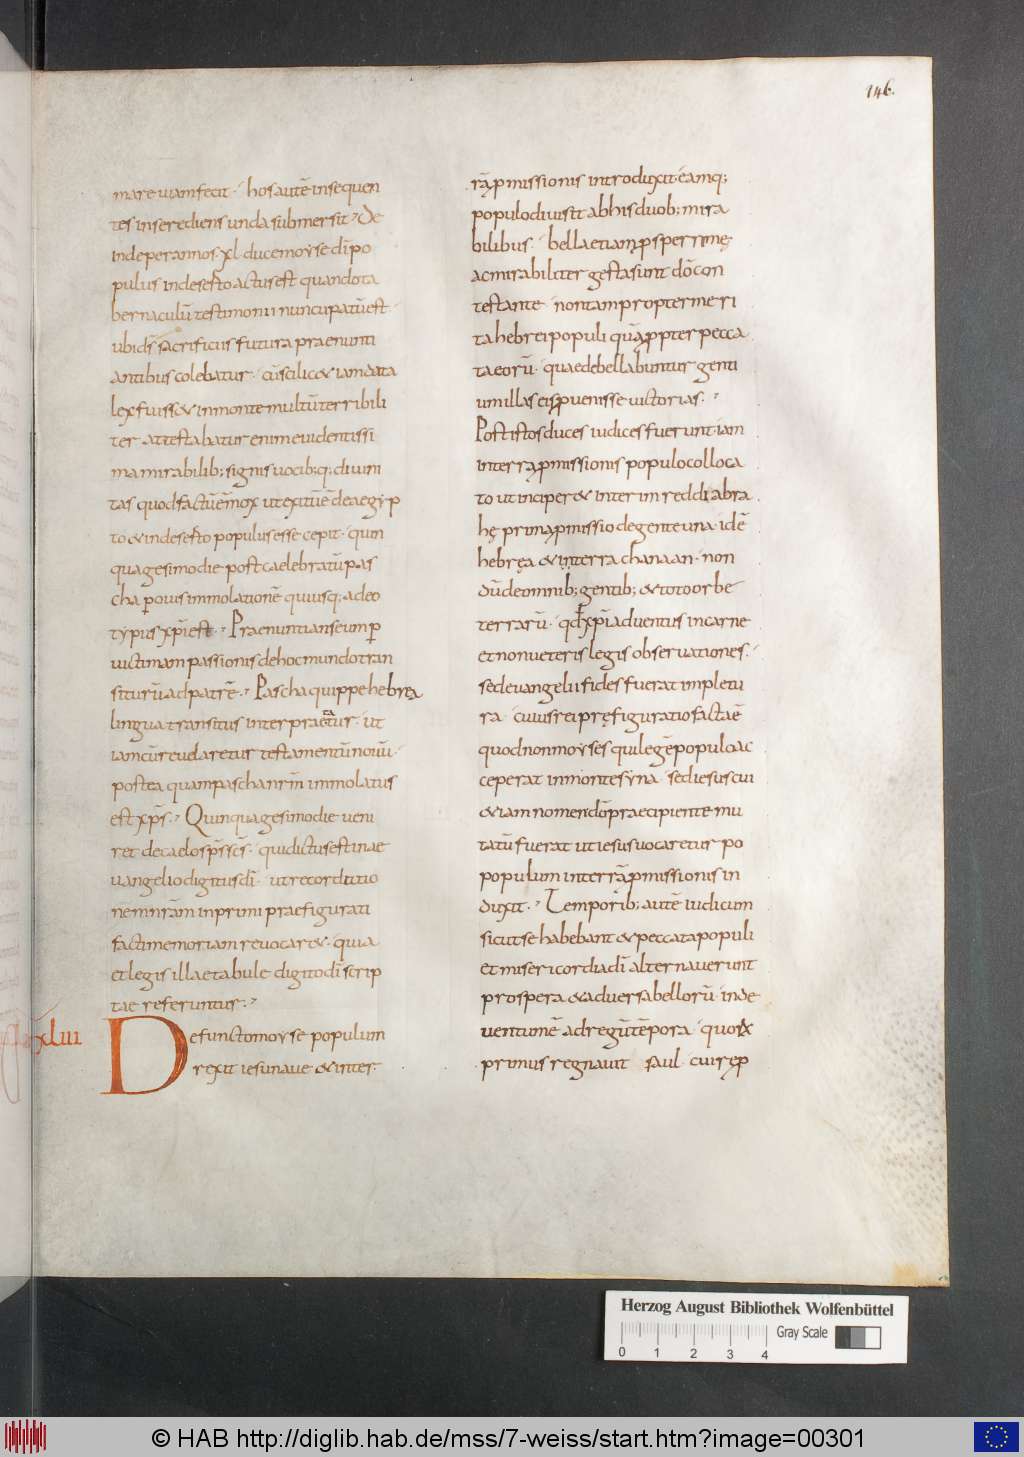 146.
mare uiam fecit · hos autē insequen
tes inse rediens unda submersit · De
inde per annos · xl · duce moyse dī po
pulus in deserto actus est quando ta
bernaculū testimonii nuncupatū est ·
ubi ds̄ sacrificiis futura praenunti
antibus colebatur · cū scilicet iam data
lex fuisset in monte multū terribili
ter attestabatur enim euidentissi
ma mirabilib; signis uocib;q; diuini
tas quod factū ē mox ut exitū ē de aegyp
to & in deserto populus esse cepit · quin
quagesimo die post caelebratū pas
cha p ouis immolationē quiusq; adeo
typus xp̄i est · Praenuntians eum p
uictimam passionis de hoc mundo tran
siturū ad patrē · Pascha quippe hebręa
lingua transitus interpraetatur · ut
iam cū reuelaretur testamentū nouū ·
postea quam pascha nr̄m immolatus
est xp̄s · Quinquagesimo die ueni
ret de caelo sp̄s sc̄s · qui dictus est in ae
uangelio digitus dī · ut recordatio
nem nr̄am in primi praefigurati
facti memoriam reuocaret · quia
et legis illae tabulae digito dī scrip
tae referuntur ·
xliii
Defuncto moyse populum
rexit iesu naue & in ter
rā pmissionis introduxit · eamq;
populo diuisit ab his duob; mira
bilibus · bella etiam psperrimę
ac mirabiliter gesta sunt dō con
testante · non tam propter meri
ta hebrei populi quā ppter pecca
ta eorū · quae debellabuntur genti
um illas eis puenisse uictorias ·
Post istos duces iudices fuerunt · iam
in terrā pmissionis populo colloca
to ut inciperet interim reddi abra
hę prima pmissio de gente una · idē
hebręa & in terra chanaan · non
dū de omnib; gentib; & toto orbe
terrarū · qd xp̄i aduentus in carne
et non ueteris legis obseruationes ·
sed euangelii fides fuerat impletu
ra · cuius rei pręfiguratio facta ē
quod non moyses qui legē populo ac
ceperat in monte syna · sed iesus cui
etiam nomen dō praecipiente mu
tatū fuerat ut iesus uocaretur po
populum in terrā pmissionis in
duxit · Temporib; autē iudicum
sicut se habebant & peccata populi
et misericordia dī alternauerunt
prospera & aduersa bellorū · inde
uentum ē ad regū tēpora · quorū
primus regnauit saul · cui rep
Herzog August Bibliothek Wolfenbüttel
0 1 2 3 4 Gray Scale
© HAB http://diglib.hab.de/mss/7-weiss/start.htm?image=00301